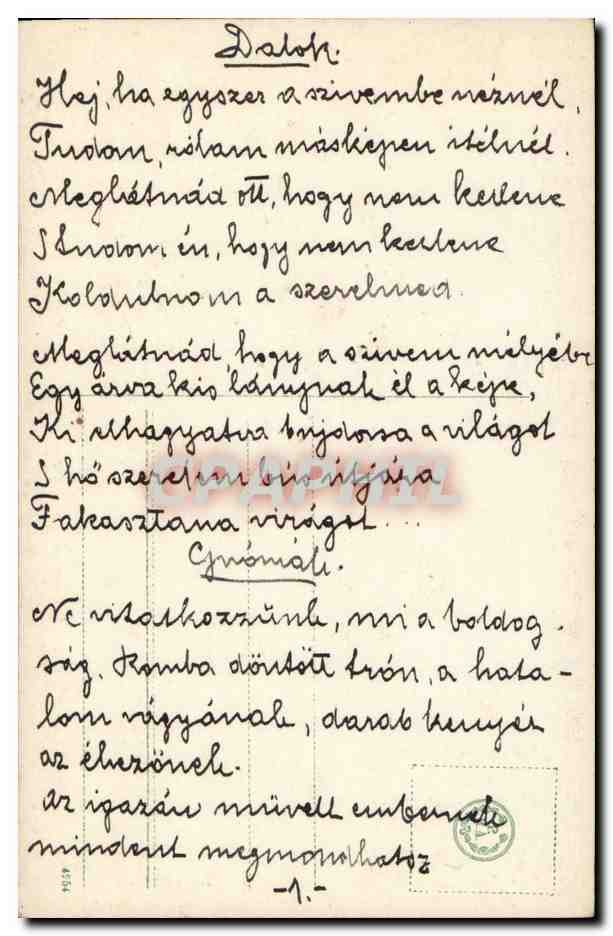 Dalok.
Hej, ha egyszer a szivembe néznél,
Tudom, rólam másképen itélnél.
Meglátnád ott, hogy nem kellene
S tudom én, hogy nem kellene
Koldulnom a szerelmed.
Meglátnád, hogy a szivem mélyébe
Egy árva kis lánynak él a képe,
Ki elhagyatva bujdossa a világot
S hő szerelem bús útjára
Fakasztana virágot...
Gnómák.
Ne vitatkozzünk, mi a boldog-
ság. Romba döntött trón, a hata-
lom vágyának, darab kenyér
az éhezőnek.
Az igazán művelt embernek
mindent megmondhatsz
-1.-
4954
CPAPHIL